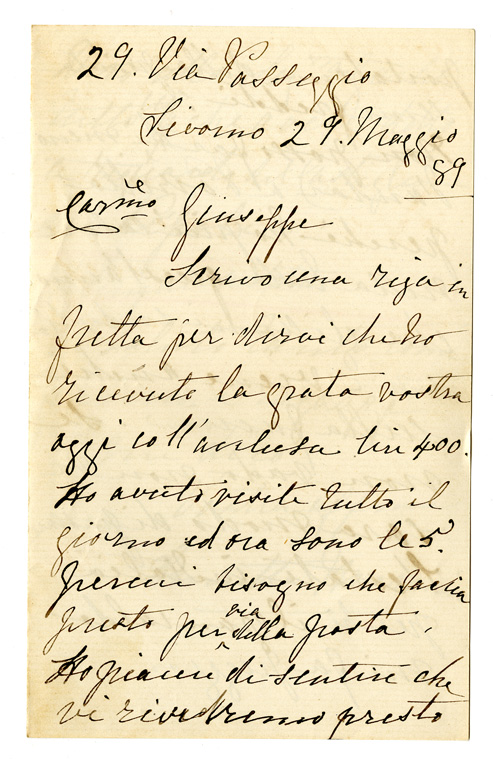 29. Via Passeggio
Livorno 29. Maggio
89
Carmo Giuseppe
Scrivo una riga in
fretta per dirvi che ho
ricevuto la grata vostra
oggi coll'acclusa lire 400.
Ho avuto visite tutto il
giorno ed ora sono le 5.
percui bisogno che faccia
presto per via della posta.
Ho piacere di sentire che
vi rivedremo presto